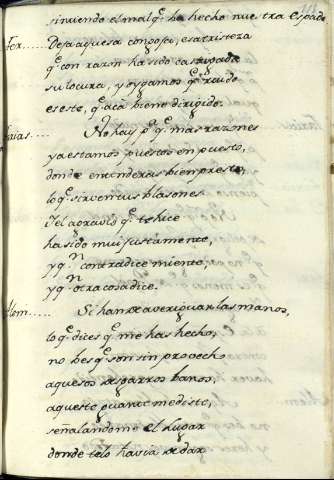 sintiendo el mal q̃ ha hecho nuestra espada
Fer..... Deja aquesa congoja, esa tristeza
q̃ con razon ha sido castigada
su locura, y oygamos q̃ ruido
es este, q̃ acà biene dirigido.
No hay p.ª q̃ mas razones
ya estamos puestos en puesto,
donde entenderas bien presto
lo q̃ sirven tus blasones
I el agravio q̃ te hice
ha sido mui justamente,
y q.n contradice miente,
y q.n otra cosa dice.
Alem..... Si han de averiguar las manos,
lo q̃ dices q̃ me has hecho,
no bes q̃ son sin provecho
aquesos desgarros banos,
aqueste guante mediste,
señalandome el lugar
donde telo havia de dar